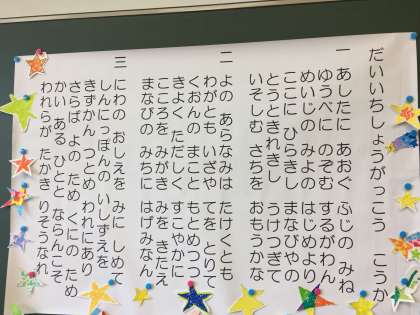 だいいちしょうがっこう こうか
一 あしたに あおぐ ふじの みね
ゆうべに のぞむ するがわん
めいじの みよの はじめより
ここに ひらきし まなびやの
とうとき れきし うけつぎて
いそしむ さちを おもうかな
二 よの あらなみは たけくとも
わがとも いざや てを とりて
くおんの まこと もとめつつ
きよく ただしく すこやかに
こころを みがき みを きたえ
まなびの みちに はげみなん
三 にわの おしえを みに しめて
しんにっぽんの いしずえを
きずかん つとめ われにあり
さらば よの ため くにの ため
かいある ひとと ならんこそ
われらが たかき りそうなれ